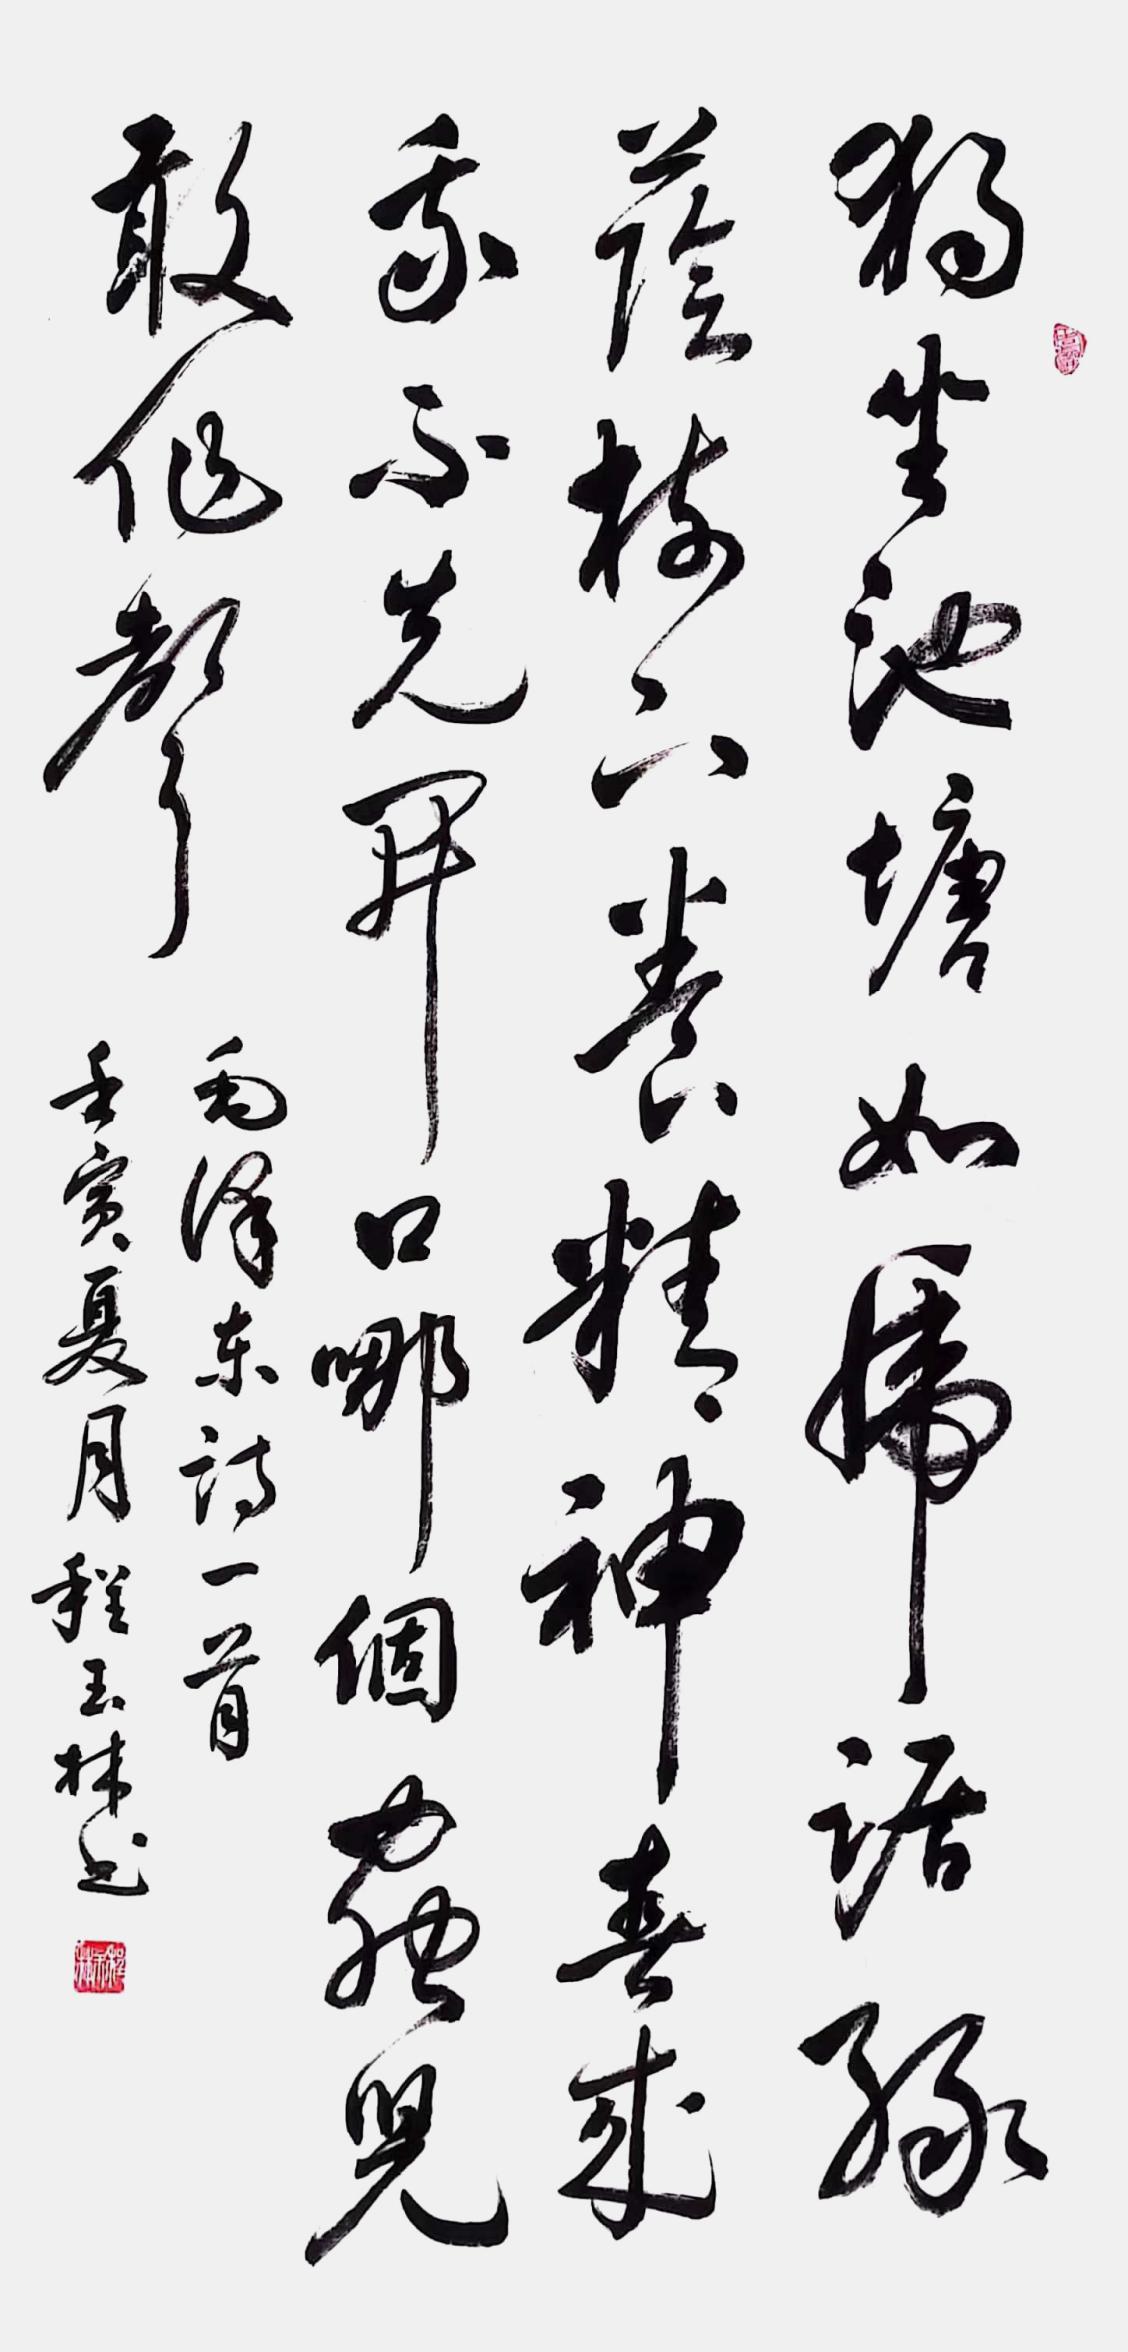 獨坐池塘如虎踞綠
蔭樹下養精神春來
我不先開口哪個蟲兒
敢作聲
毛泽东詩一首
壬寅夏月程玉林书